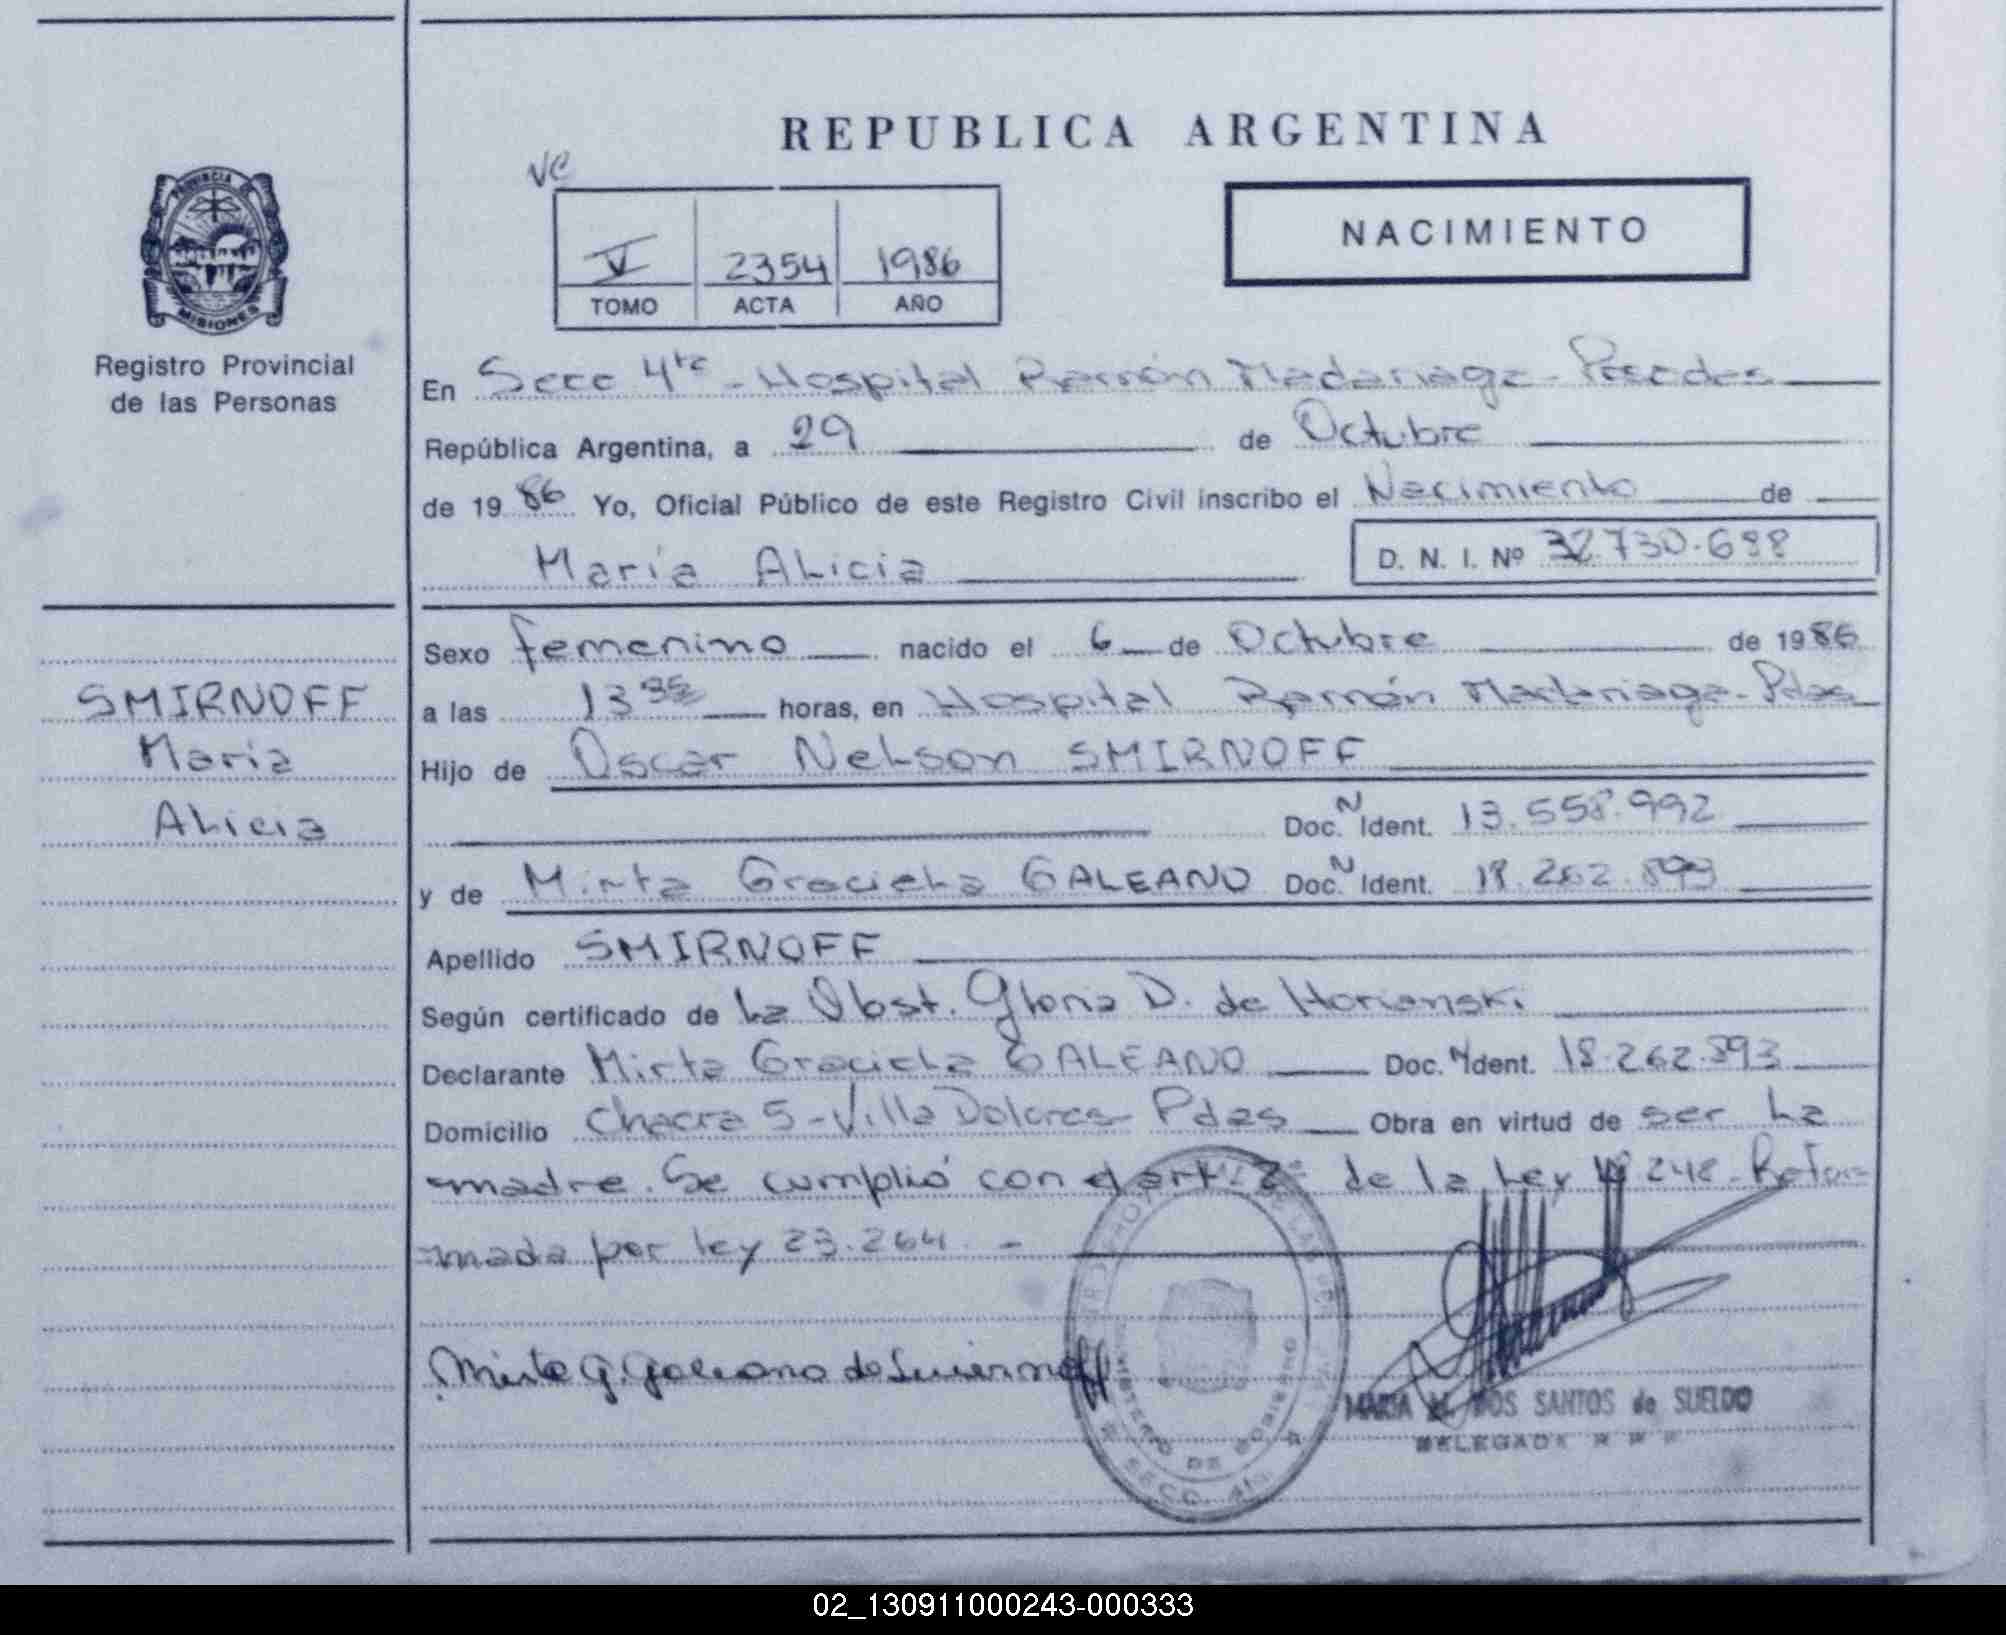 REPUBLICA ARGENTINA
PROVINCIA DE
MISIONES
Registro Provincial
de las Personas
VC
NACIMIENTO
V 2354 1986
TOMO ACTA AÑO
En Secc 4ta - Hospital Ramón Madariaga - Posadas
República Argentina, a 29 de Octubre
de 1986 Yo, Oficial Público de este Registro Civil inscribo el Nacimiento de
María Alicia D. N. I. Nº 32.730.698
Sexo femenino nacido el 6 de Octubre de 1986
SMIRNOFF
a las 13 35 horas, en Hospital Ramón Madariaga - Pdas
María
Hijo de Oscar Nelson SMIRNOFF
Alicia
Doc. N Ident. 13.558.992
y de Mirta Graciela GALEANO Doc. N Ident. 18.262.893
Apellido SMIRNOFF
Según certificado de la Obst. Gloria D. de Horianski
Declarante Mirta Graciela GALEANO Doc. N Ident. 18.262.893
Domicilio Chacra 5 - Villa Dolores Pdas Obra en virtud de ser la
madre. Se cumplió con el art 2º de la ley 18 248 - Refor
mada por ley 23.264 . -
Mirta G. Galeano de Smirnoff
MINISTERIO DE GOBIERNO
SECC. 4ta
MARIA M. DOS SANTOS de SUELDO
DELEGADA R P P
02_130911000243-000333